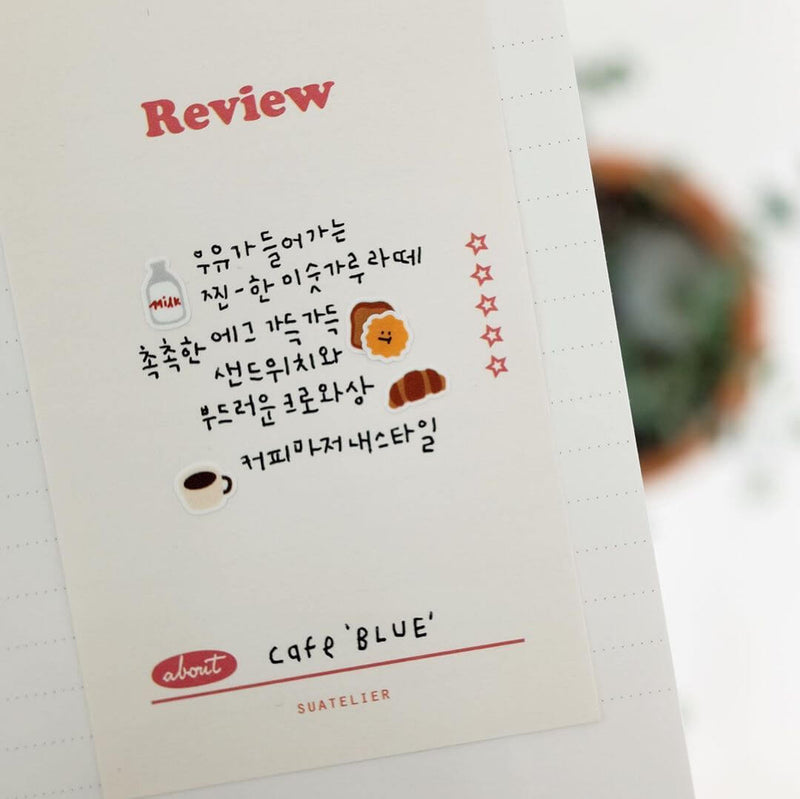 Review
우유가 들어가는
찐-한 미숫가루 라떼
MILK
촉촉한 에그 가득가득
샌드위치와
부드러운 크로와상
커피마저 내스타일
about cafe 'BLUE'
SUATELIER